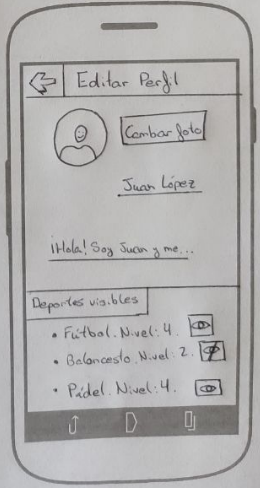 Editar Perfil
Cambar foto
Juan López
¡Hola! Soy Juan y me...
Deportes visibles
• Fútbol. Nivel: 4.
• Baloncesto. Nivel: 2.
• Pádel. Nivel: 4.